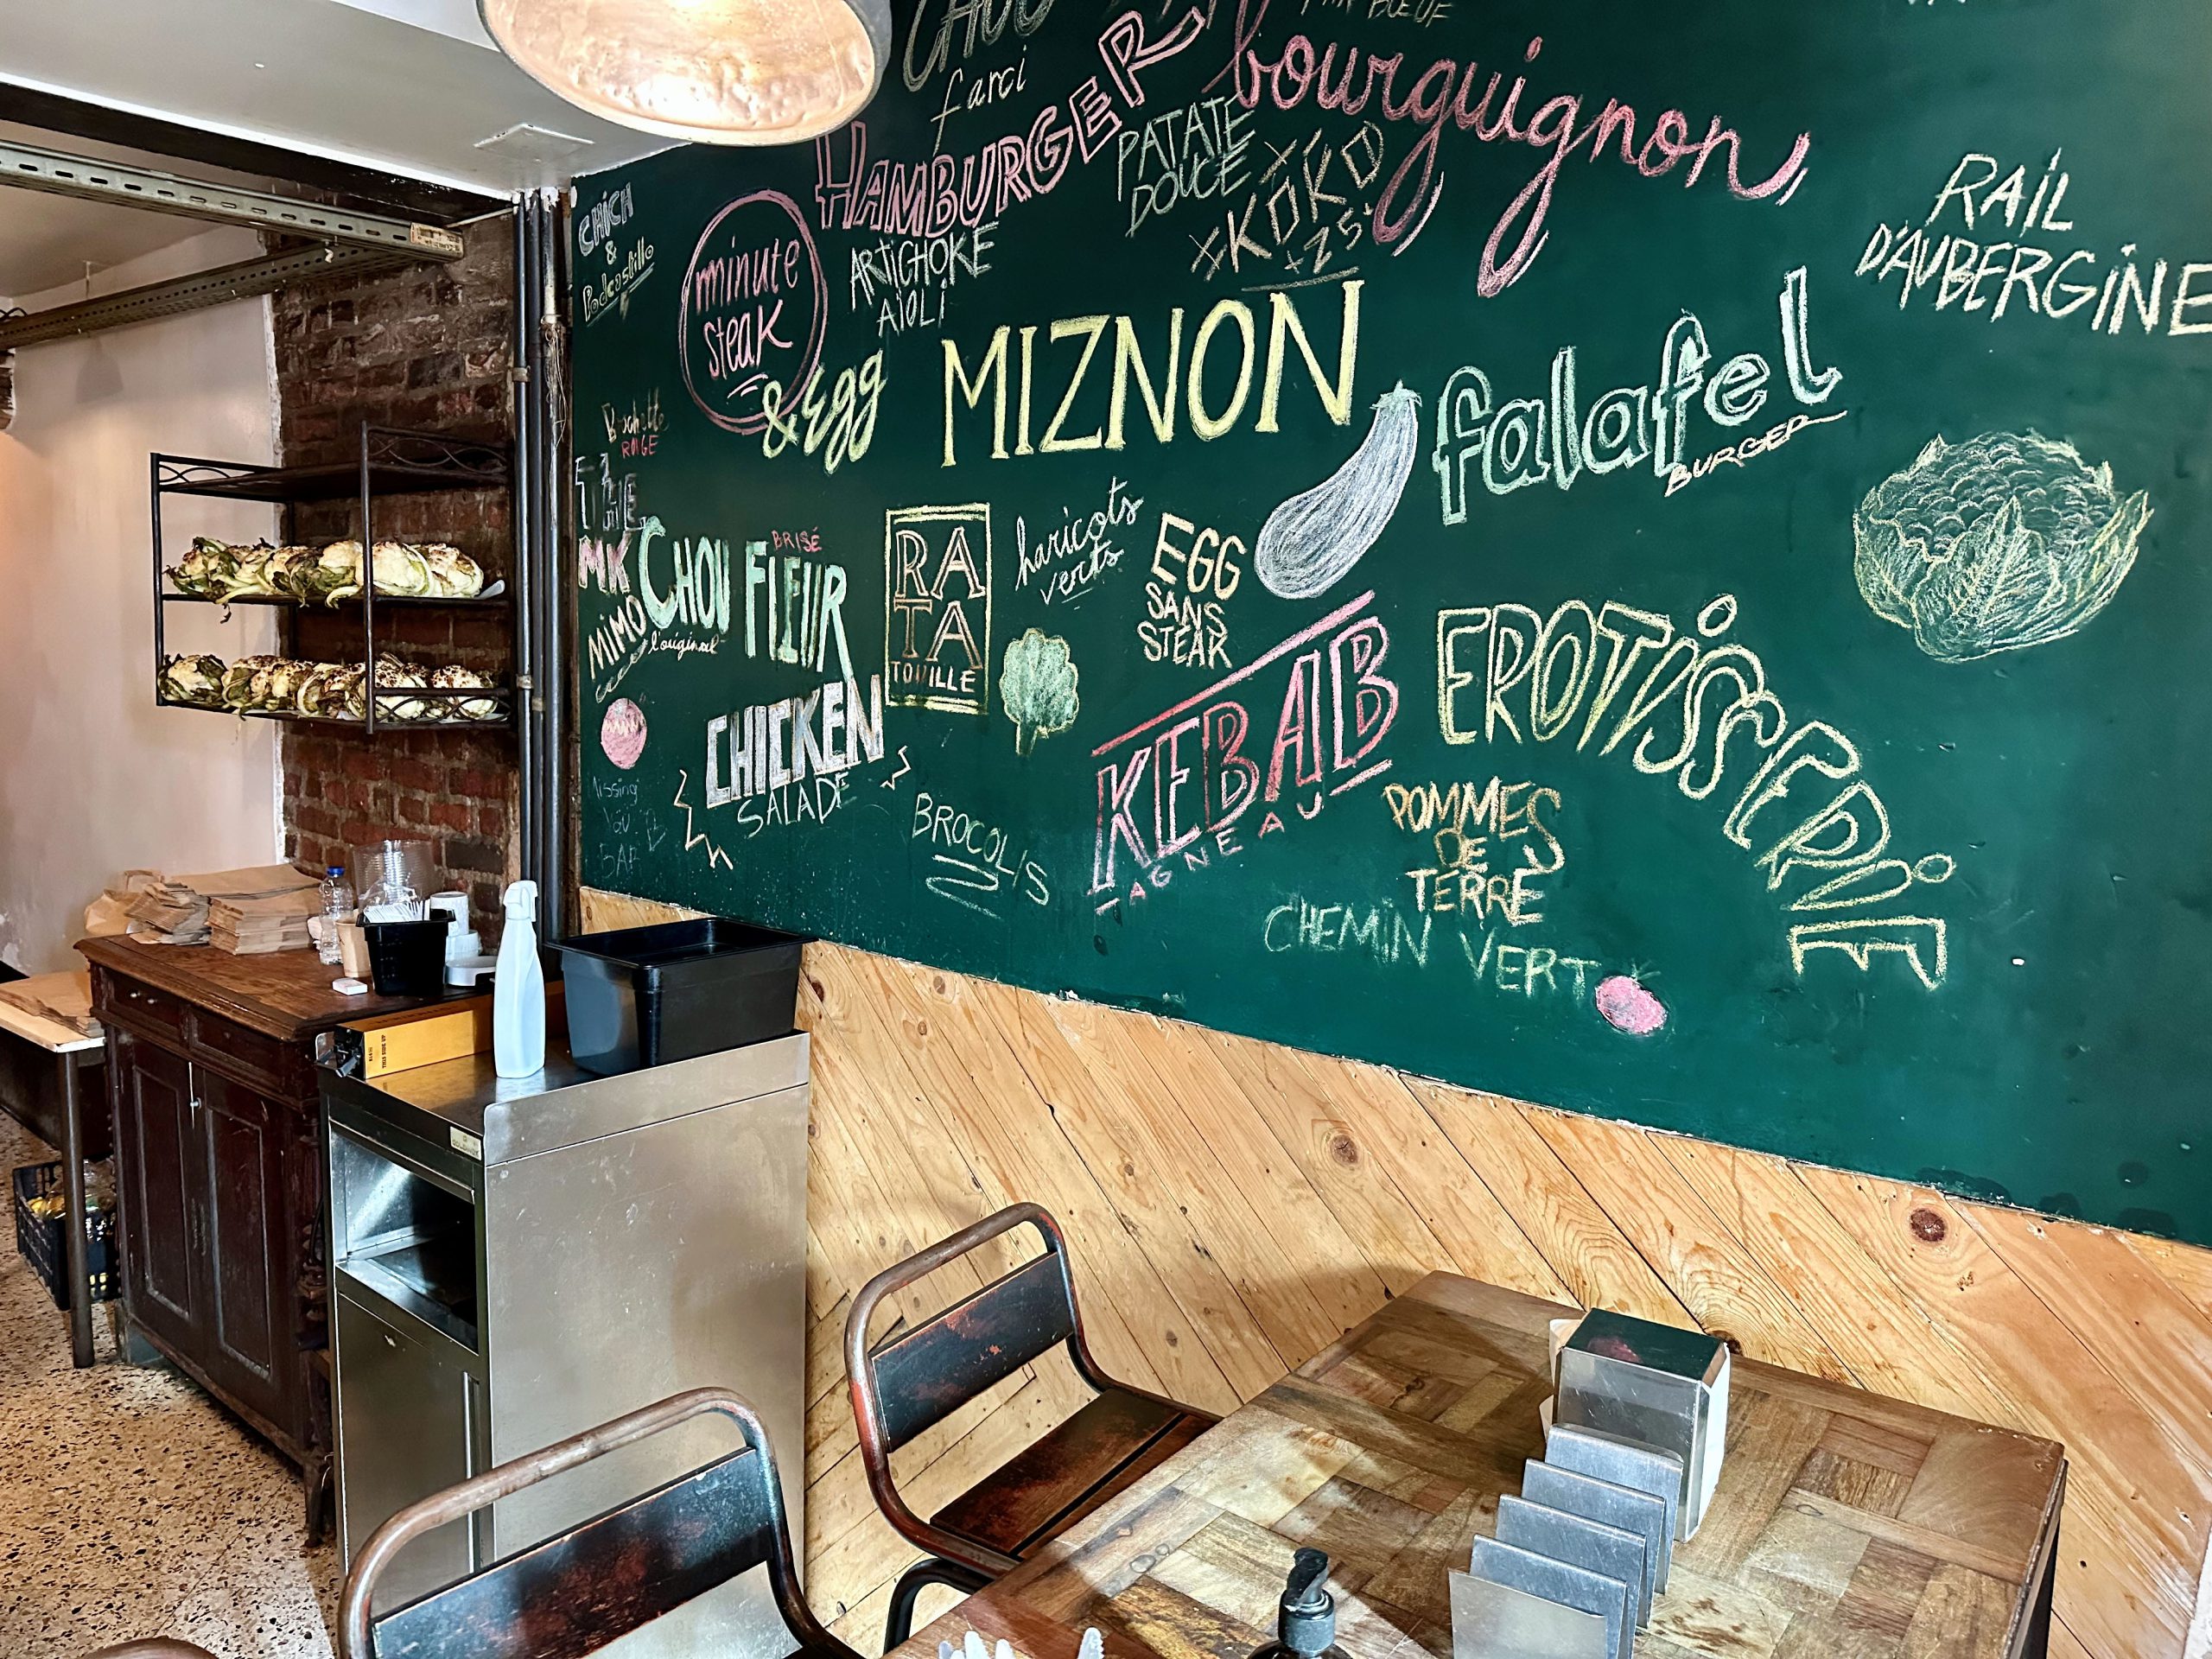 CHOU
farci
HAMBURGER
bourguignon
PATATE
DOUCE
XKO
XKÖKO
+25+
RAIL
D'AUBERGINE
CHICH
&
minute
steak
& Egg
ARTICHOKE
AÏOLI
MIZNON
falafel
BURGER
ROUGE
THE
MK
MIMO
CHOU FLEUR
BRISÉ
l'original
RA
TA
TOUILLE
haricots
verts
EGG
SANS
STEAK
CHICKEN
SALADE
BROCOLIS
KEBAB
AGNEAU
EROTISSERIE
POMMES
DE
TERRE
CHEMIN VERT
missing
BAR
THIS SIDE UP